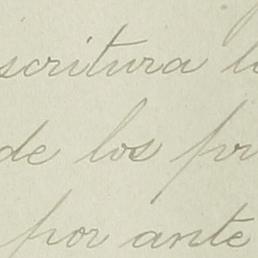 scritura l
de los pr
por ante